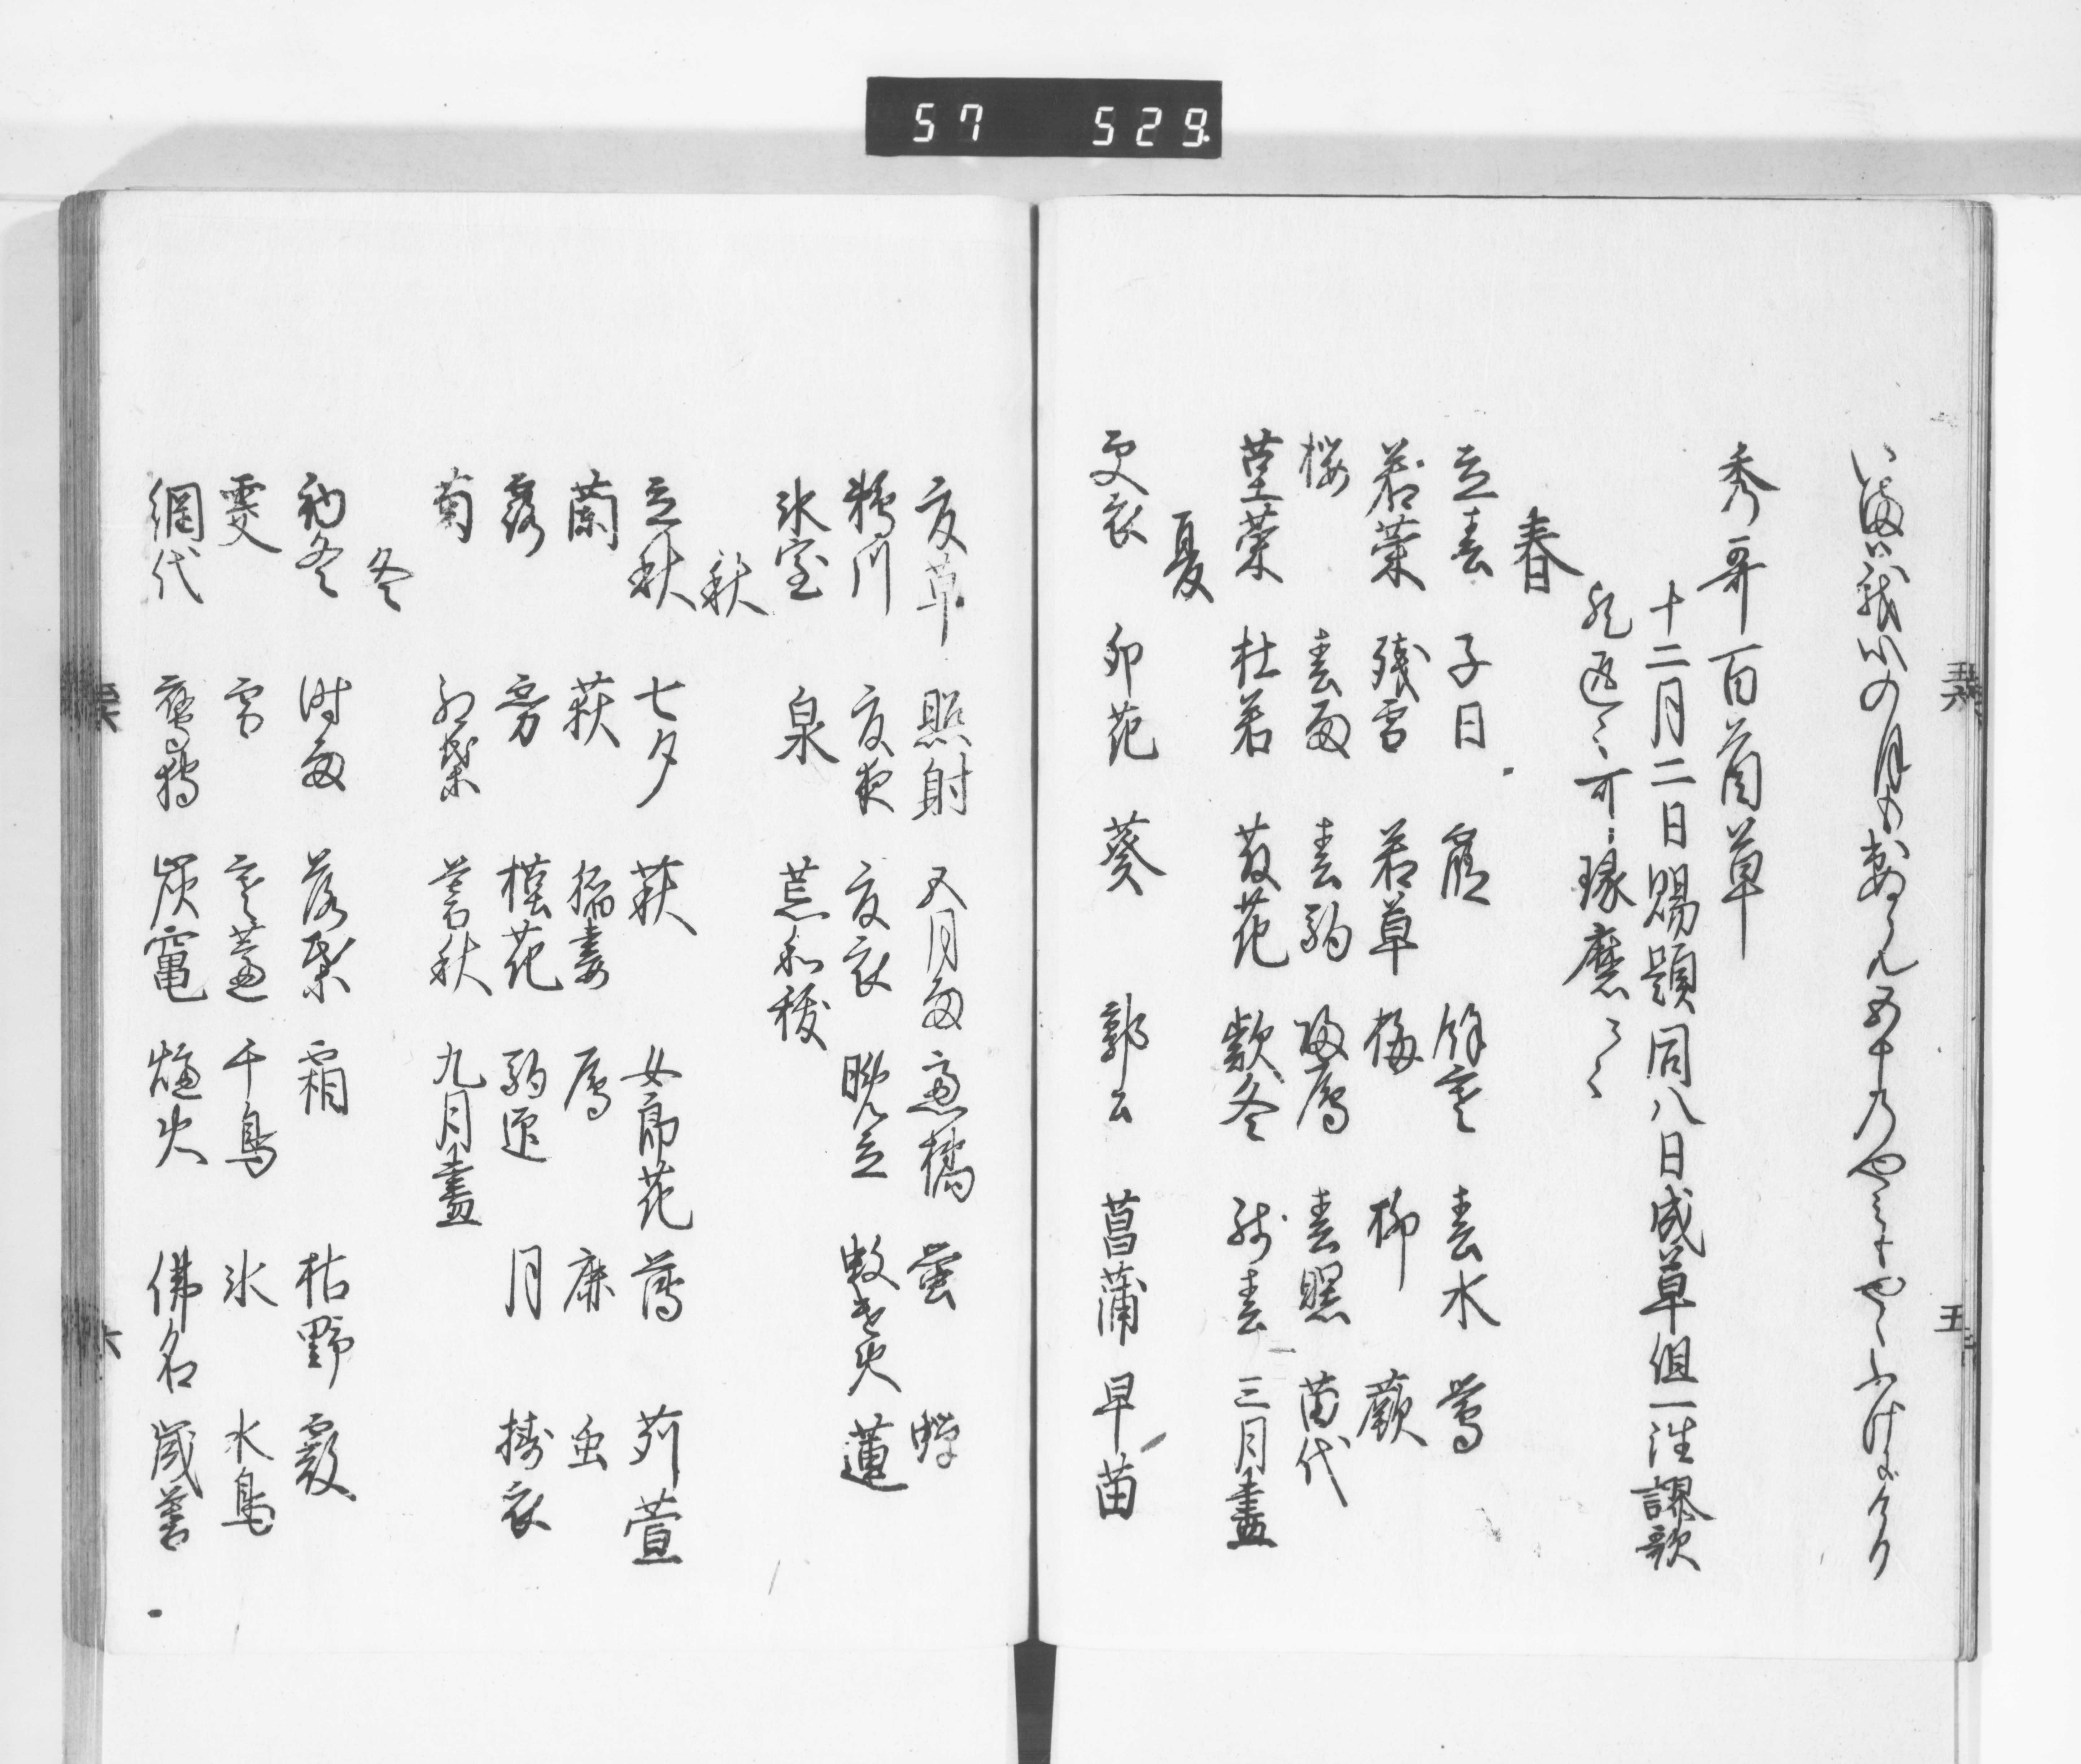 57 529
秀哥百首草
十二月二日賜題同八日成草但一注謬歌
可琢磨云々
春
立春 子日 霞 餘寒 春水 鶯
若菜 残雪 若草 梅 柳 蕨
桜 春雨 春駒 帰鴈 春曙 苗代
菫菜 杜若 藤花 欵冬 残春 三月盡
夏
更衣 卯花 葵 郭公 菖蒲 早苗
夏草 照射 五月雨 盧橘 蛍 蝉
鵜川 夏夜 夏衣 晩立 蚊遣火 蓮
氷室 泉 荒和祓
秋
立秋 七夕 萩 女郎花 薄 苅萱
蘭 荻 稲妻 鴈 鹿 虫
露 霧 槿花 駒迎 月 擣衣
菊 紅葉 暮秋 九月盡
冬
初冬 時雨 落葉 霜 枯野 霰
霙 雪 寒蘆 千鳥 氷 水鳥
網代 鷹狩 炭竃 爐火 佛名 歳暮